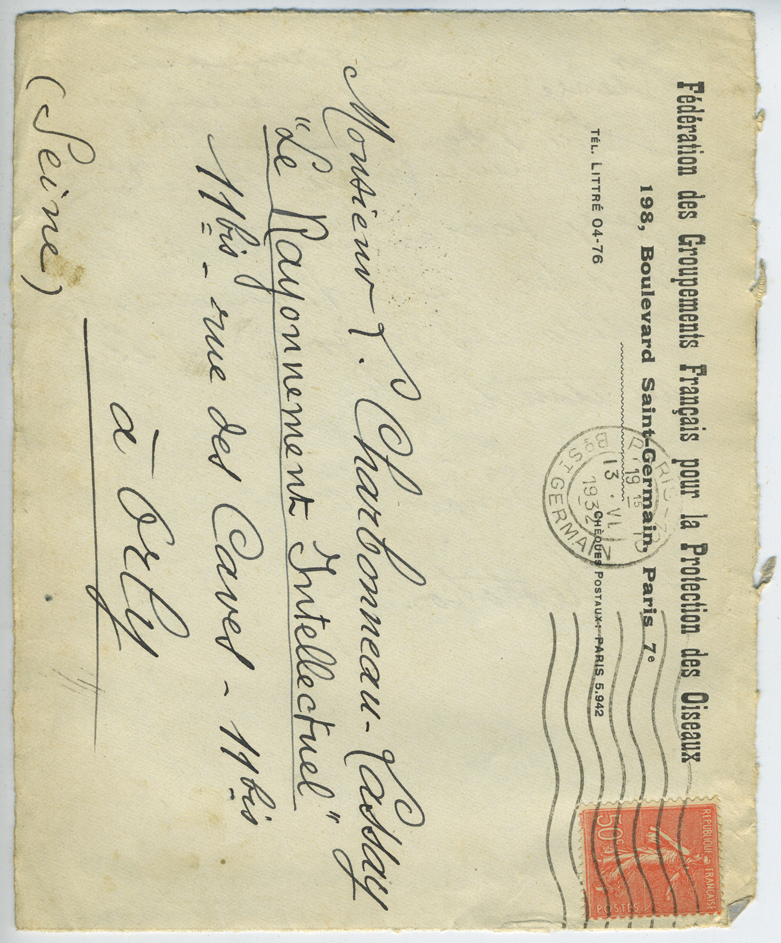 Fédération des Groupements Français pour la Protection des Oiseaux
198, Boulevard Saint-Germain, Paris 7e
TÉL. LITTRÉ 04-76
CHÈQUES POSTAUX: PARIS 5.942
PARIS
19 15
13 · VI
1932
Bd ST GERMAIN
RÉPUBLIQUE FRANÇAISE
50c
POSTES
Monsieur L. Charbonneau-Lassay
"Le Rayonnement Intellectuel"
11bis - rue des Caves - 11bis
à Orly
(Seine)